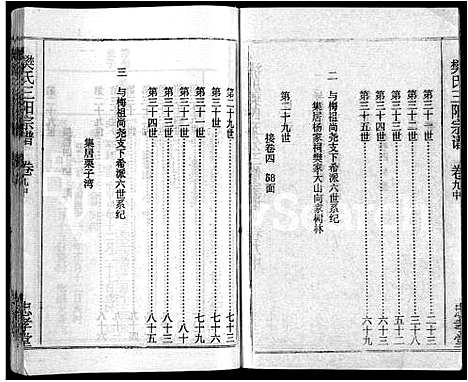 樊氏三阳宗谱 卷九中 忠孝堂
第三十一世……二十三
第三十二世……三十三
第三十三世……五十二
第三十四世……六十三
第三十五世……六十九
二 与梅祖尚尧支下希派六世系纪
集居杨家祠樊家大山向家树林
第二十九世
接卷四 58面
第二十九世……七十三
第三十世……七十六
第三十一世……七十九
第三十二世……八十
第三十三世……八十三
第三十四世……八十五
三 与梅祖尚尧支下希派六世系纪
集居栗子湾
樊氏三阳宗谱 卷九中 忠孝堂